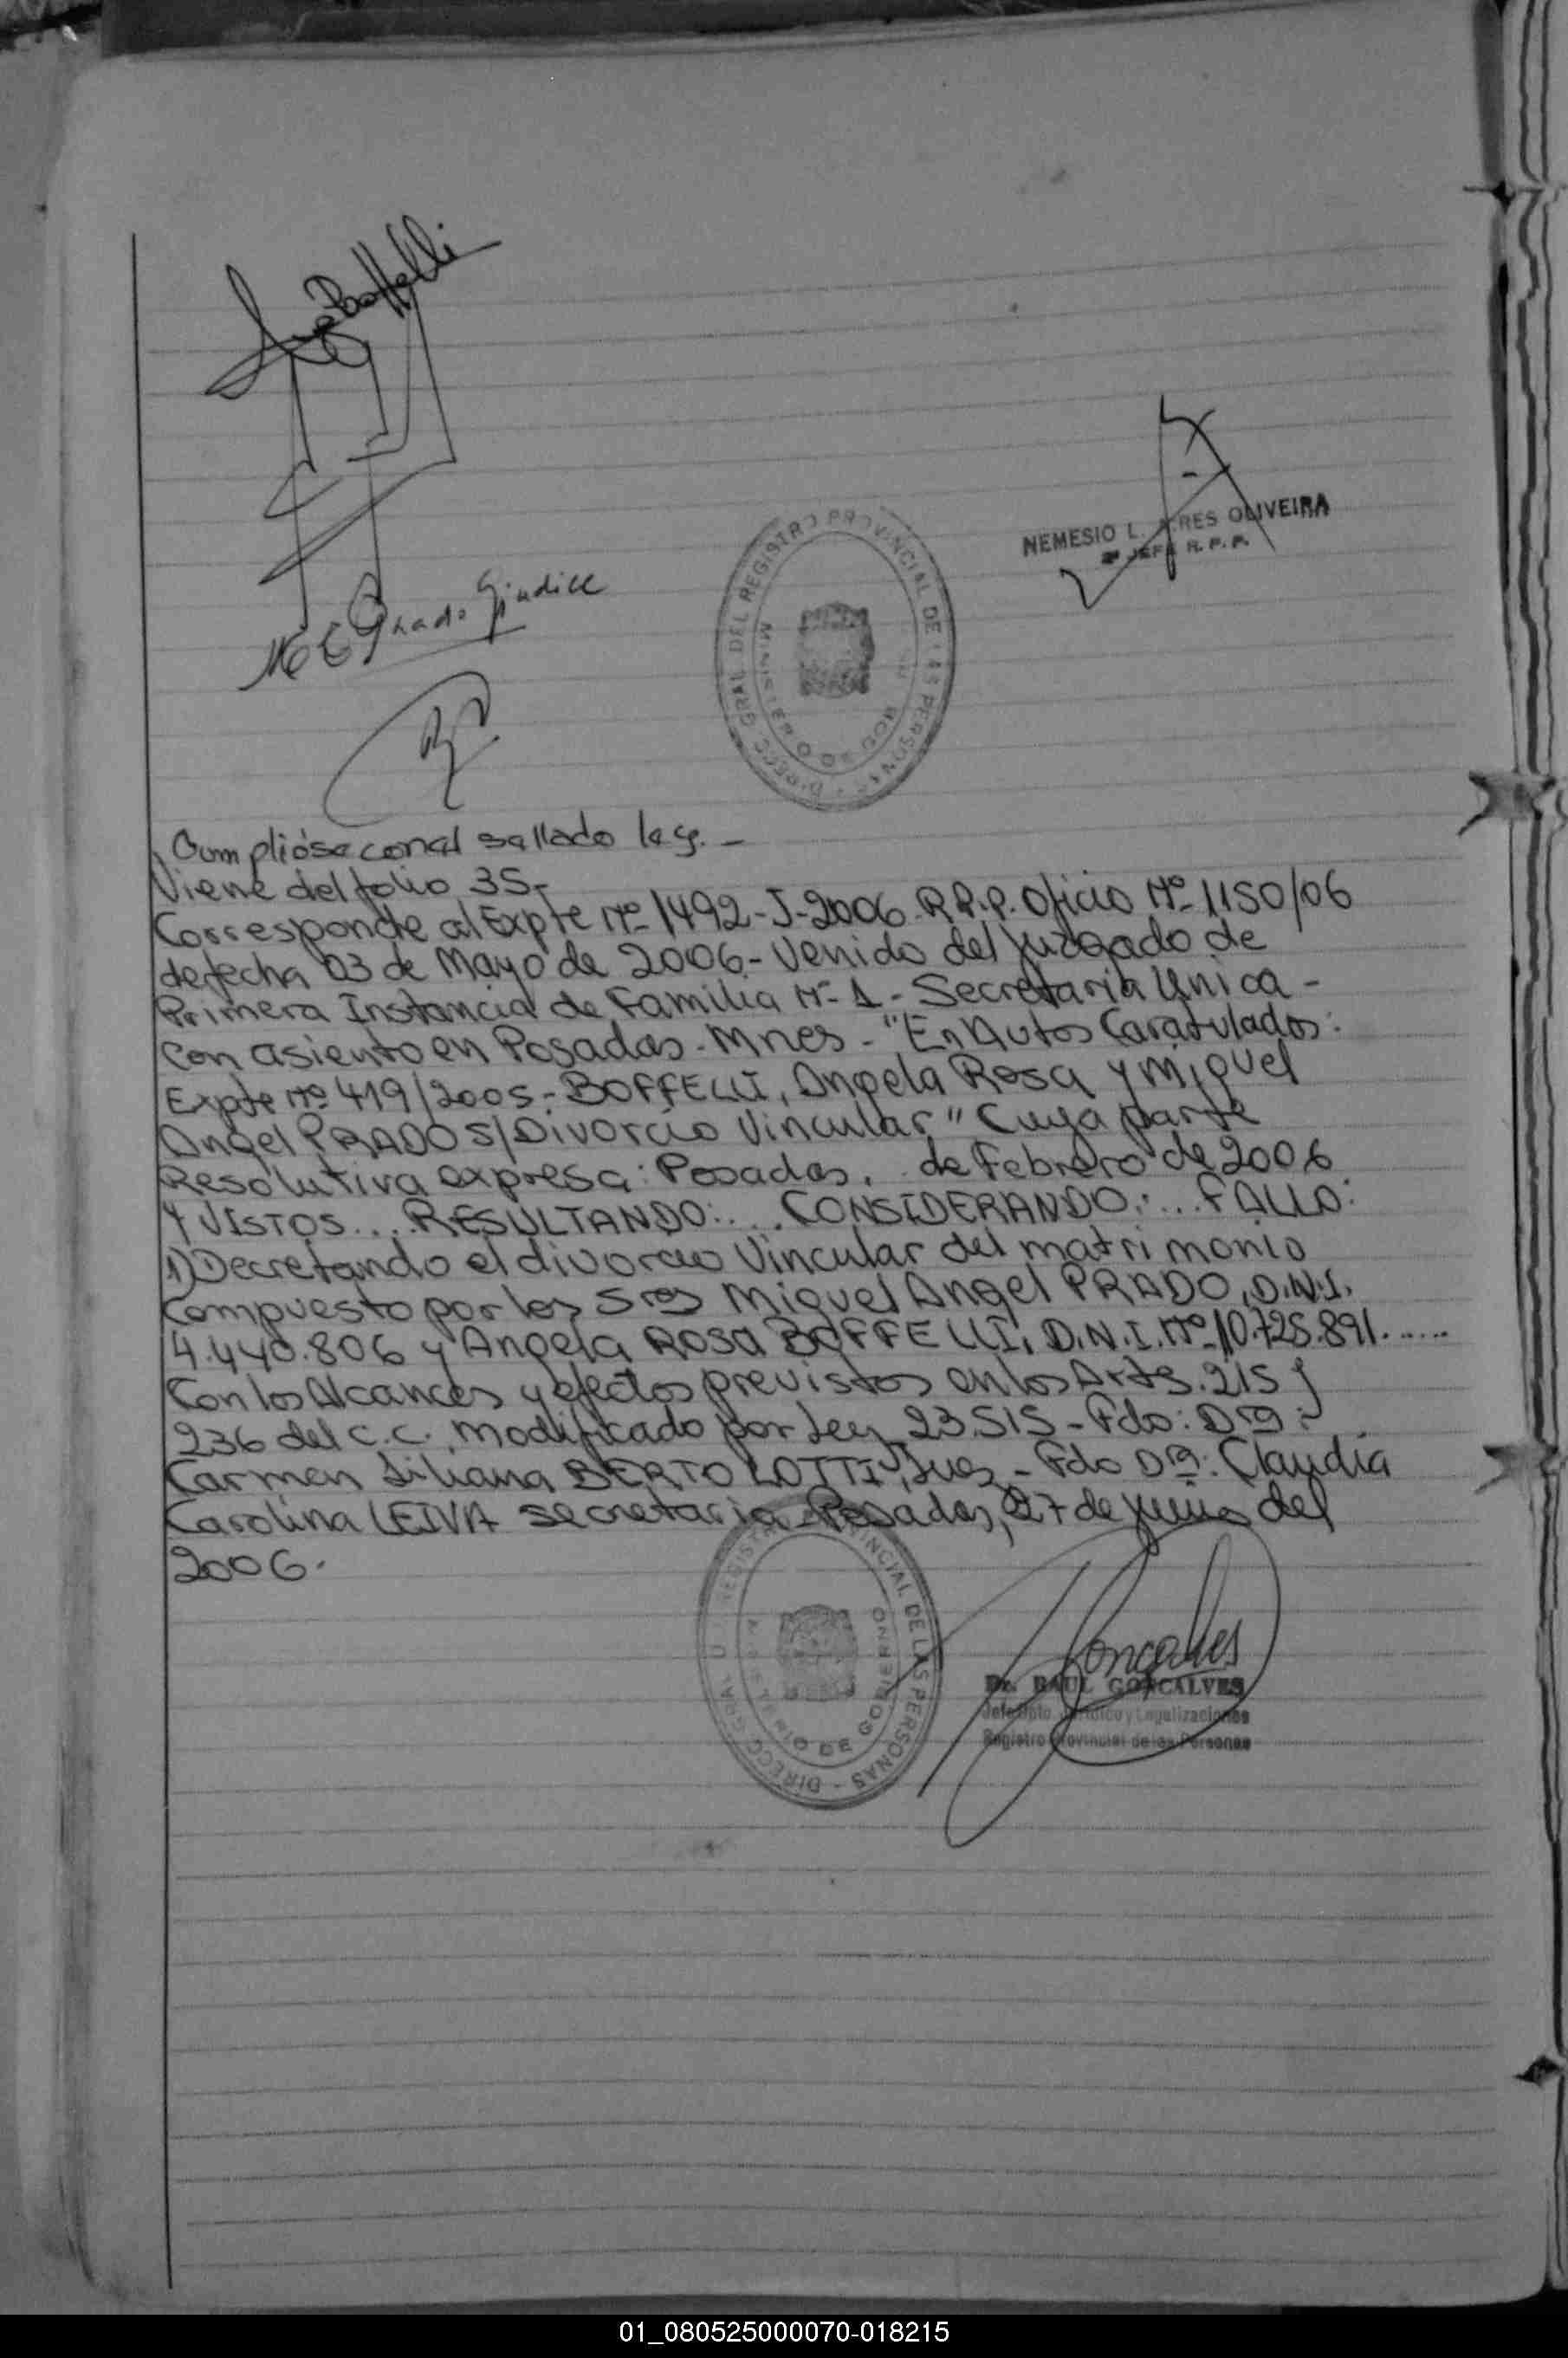 Angela Boffelli
NEMESIO L. AIRES OLIVEIRA
2º JEFE R.P.P.
DIRECC GRAL DEL REGISTRO PROVINCIAL DE LAS PERSONAS
MINISTERIO DE GOB
M E Prado Giudice
Cumplióse con el sellado ley.-
Viene del folio 35.-
Corresponde al Expte Nº 1492-J-2006 R.P.P. Oficio Nº 1150/06
de fecha 03 de Mayo de 2006.- Venido del Juzgado de
Primera Instancia de Familia Nº 1 - Secretaria Unica -
con asiento en Posadas - Mnes - "En Autos Caratulados:
Expte Nº 419/2005.- BOFFELLI, Angela Rosa y Miguel
Angel PRADO S/Divorcio Vincular" Cuya parte
Resolutiva expresa: Posadas, de Febrero de 2006
Y VISTOS... RESULTANDO:.... CONSIDERANDO:... FALLO:
1) Decretando el divorcio Vincular del matrimonio
compuesto por los Sres Miguel Angel PRADO, D.N.I.
4.440.806 y Angela Rosa BOFFELLI, D.N.I. Nº 10.725.891......
Con los Alcances y efectos previstos en los Arts. 215 y
236 del C.C. Modificado por Ley 23.515 - Fdo: Dra:
Carmen Liliana BERTOLOTTI, Juez - Fdo Dra: Claudia
Carolina LEIVA secretaria - Posadas, 27 de Junio del
2006.
DIRECC GRAL REGISTRO PROVINCIAL DE LAS PERSONAS
MINISTERIO DE GOBIERNO
Goncalves
Dr. RAUL GONCALVES
Jefe Dpto. Jurídico y Legalizaciones
Registro Provincial de las Personas
01_080525000070-018215